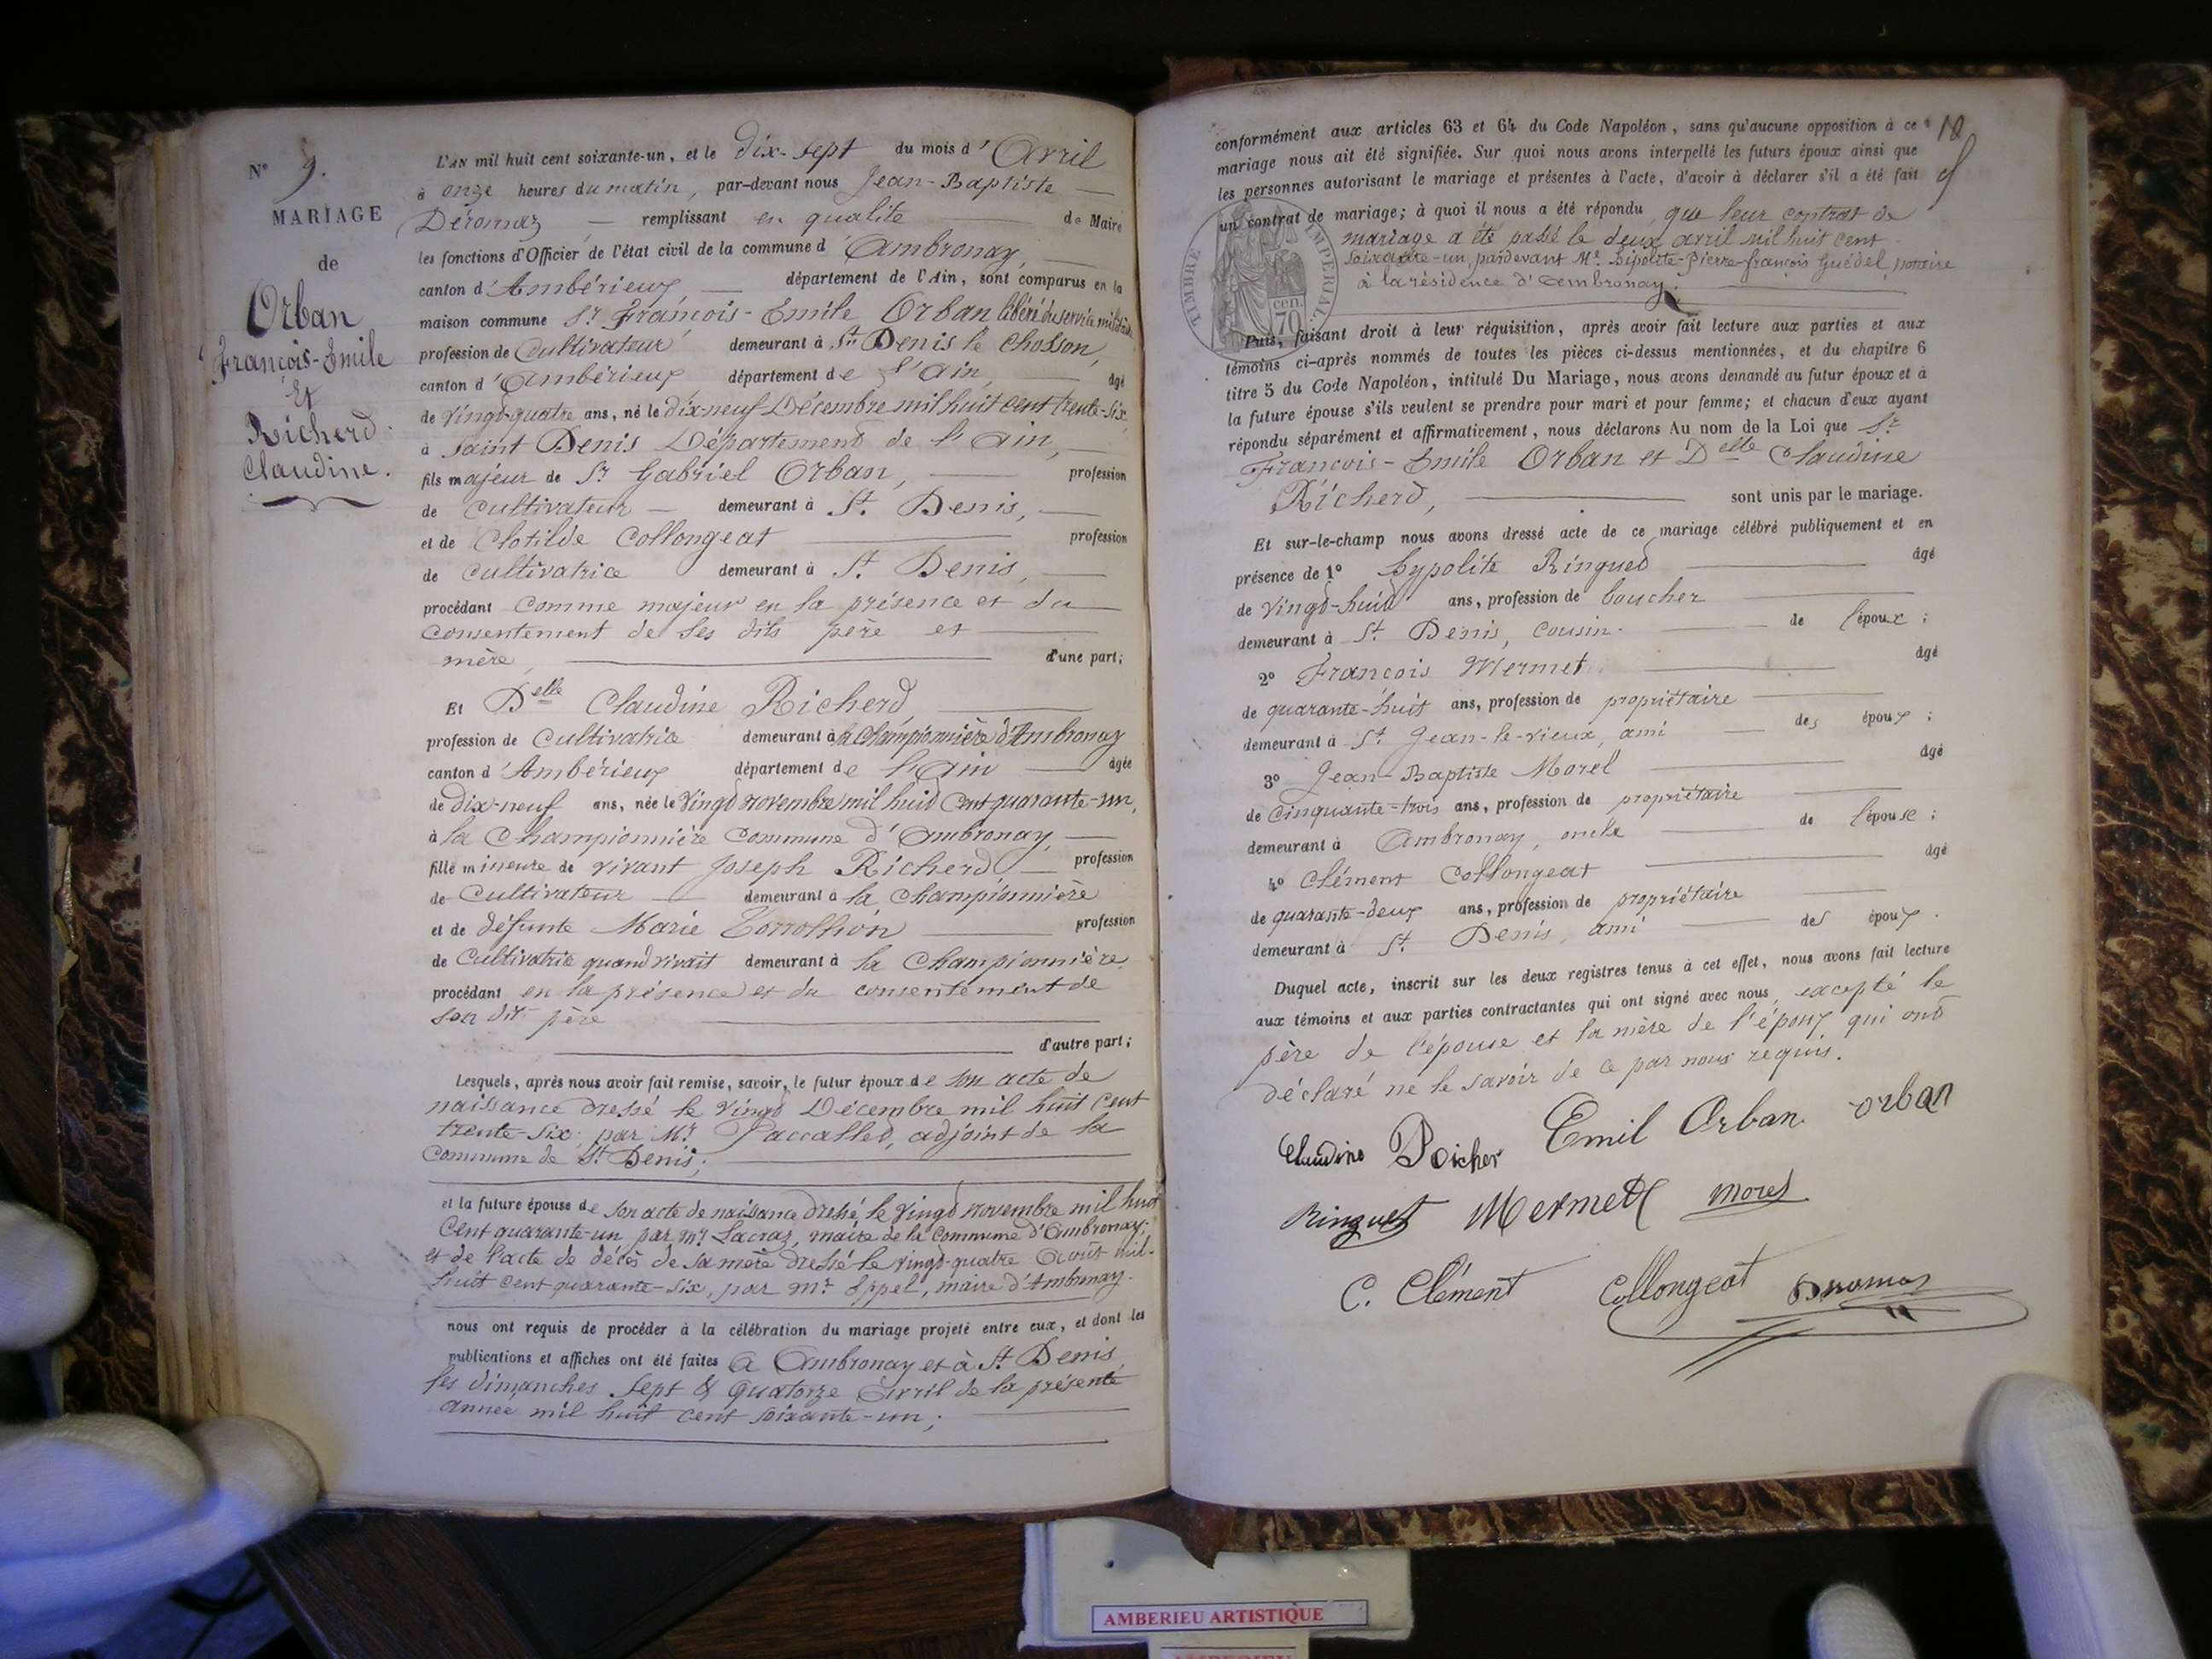 N° 9.
MARIAGE
de
Orban
François-Emile
Et
Richerd
Claudine.
L'AN mil huit cent soixante-un, et le dix-sept du mois d'Avril
à onze heures du matin, par-devant nous Jean-Baptiste
Déromaz remplissant en qualité de Maire
les fonctions d'Officier de l'état civil de la commune d'Ambronay,
canton d'Ambérieux département de l'Ain, sont comparus en la
maison commune Sr François-Emile Orban libéré du service militaire
profession de Cultivateur demeurant à St Denis le Chosson,
canton d'Ambérieux département de l'Ain, âgé
de vingt-quatre ans, né le dix-neuf Décembre mil huit cent trente-six
à Saint Denis Département de l'Ain,
fils majeur de Sr Gabriel Orban, profession
de Cultivateur demeurant à St. Denis,
et de Clotilde Collongeat profession
de Cultivatrice demeurant à St. Denis,
procédant comme majeur en la présence et du
consentement de ses dits père et
mère, d'une part;
Et Delle Claudine Richerd,
profession de Cultivatrice demeurant à la Championnière d'Ambronay
canton d'Ambérieux département de l'Ain âgée
de dix-neuf ans, née le vingt novembre mil huit cent quarante-un,
à la Championnière Commune d'Ambronay,
fille mineure de vivant Joseph Richerd profession
de Cultivateur demeurant à la Championnière
et de défunte Marie profession
de Cultivatrice quand vivait demeurant à la Championnière
procédant en la présence et du consentement de
son dit père
d'autre part;
Lesquels, après nous avoir fait remise, savoir, le futur époux de son acte de
naissance dressé le vingt Décembre mil huit cent
trente-six par Mr Paccalled, adjoint de la
Commune de St Denis;
et la future épouse de son acte de naissance dressé le vingt novembre mil huit
cent quarante-un par Mr maire de la Commune d'Ambronay;
et de l'acte de décès de sa mère dressé le vingt-quatre Août mil-
huit cent quarante-six, par Mr Eppel, maire d'Ambronay.
nous ont requis de procéder à la célébration du mariage projeté entre eux, et dont les
publications et affiches ont été faites à Ambronay et à St Denis
les dimanches sept & quatorze Avril de la présente
année mil huit cent soixante-un;
conformément aux articles 63 et 64 du Code Napoléon, sans qu'aucune opposition à ce
mariage nous ait été signifiée. Sur quoi nous avons interpellé les futurs époux ainsi que
les personnes autorisant le mariage et présentes à l'acte, d'avoir à déclarer s'il a été fait
un contrat de mariage; à quoi il nous a été répondu que leur contrat de
mariage a été passé le deux avril mil huit cent
soixante-un, pardevant Me Hipolite-Pierre-François Guédel, notaire
à la résidence d'Ambronay.
TIMBRE IMPERIAL
70 cen.
Puis, faisant droit à leur réquisition, après avoir fait lecture aux parties et aux
témoins ci-après nommés de toutes les pièces ci-dessus mentionnées, et du chapitre 6
titre 5 du Code Napoléon, intitulé Du Mariage, nous avons demandé au futur époux et à
la future épouse s'ils veulent se prendre pour mari et pour femme; et chacun d'eux ayant
répondu séparément et affirmativement, nous déclarons Au nom de la Loi que Sr
François-Emile Orban et Delle Claudine
Richerd, sont unis par le mariage.
Et sur-le-champ nous avons dressé acte de ce mariage célébré publiquement et en
présence de 1° hypolite Ringued âgé
de vingt-huit ans, profession de boucher
demeurant à St. Denis, cousin de l'époux;
2° François Mermet âgé
de quarante-huit ans, profession de propriétaire
demeurant à St. Jean-le-vieux, ami des époux;
3° Jean-Baptiste Morel âgé
de cinquante-trois ans, profession de propriétaire
demeurant à Ambronay, oncle de l'épouse;
4° Clément Collongeat âgé
de quarante-deux ans, profession de propriétaire
demeurant à St. Denis, ami des époux.
Duquel acte, inscrit sur les deux registres tenus à cet effet, nous avons fait lecture
aux témoins et aux parties contractantes qui ont signé avec nous, excepté le
père de l'épouse et la mère de l'époux qui ont
déclaré ne le savoir de ce par nous requis.
Claudine Richer Emil Orban orban
Ringuet Mermett Morel
C. Clément Collongeat Deromas
AMBERIEU ARTISTIQUE